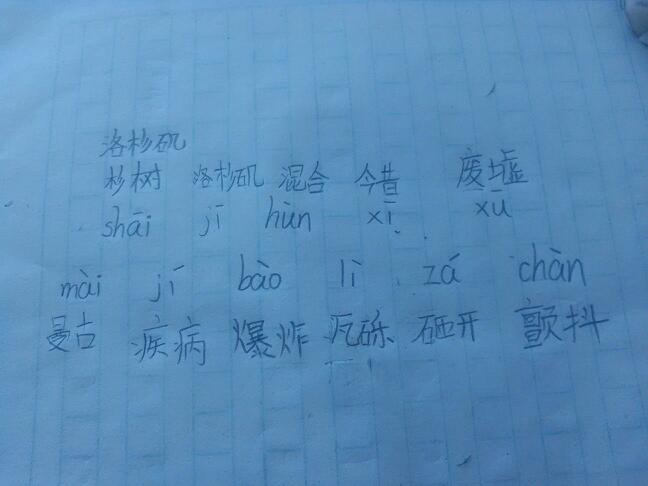 洛杉矶
杉树 洛杉矶 混合 今昔 废墟
shāi jī hùn xī xū
mài jí bào lì zá chàn
曼古 疾病 爆炸 瓦砾 砸开 颤抖